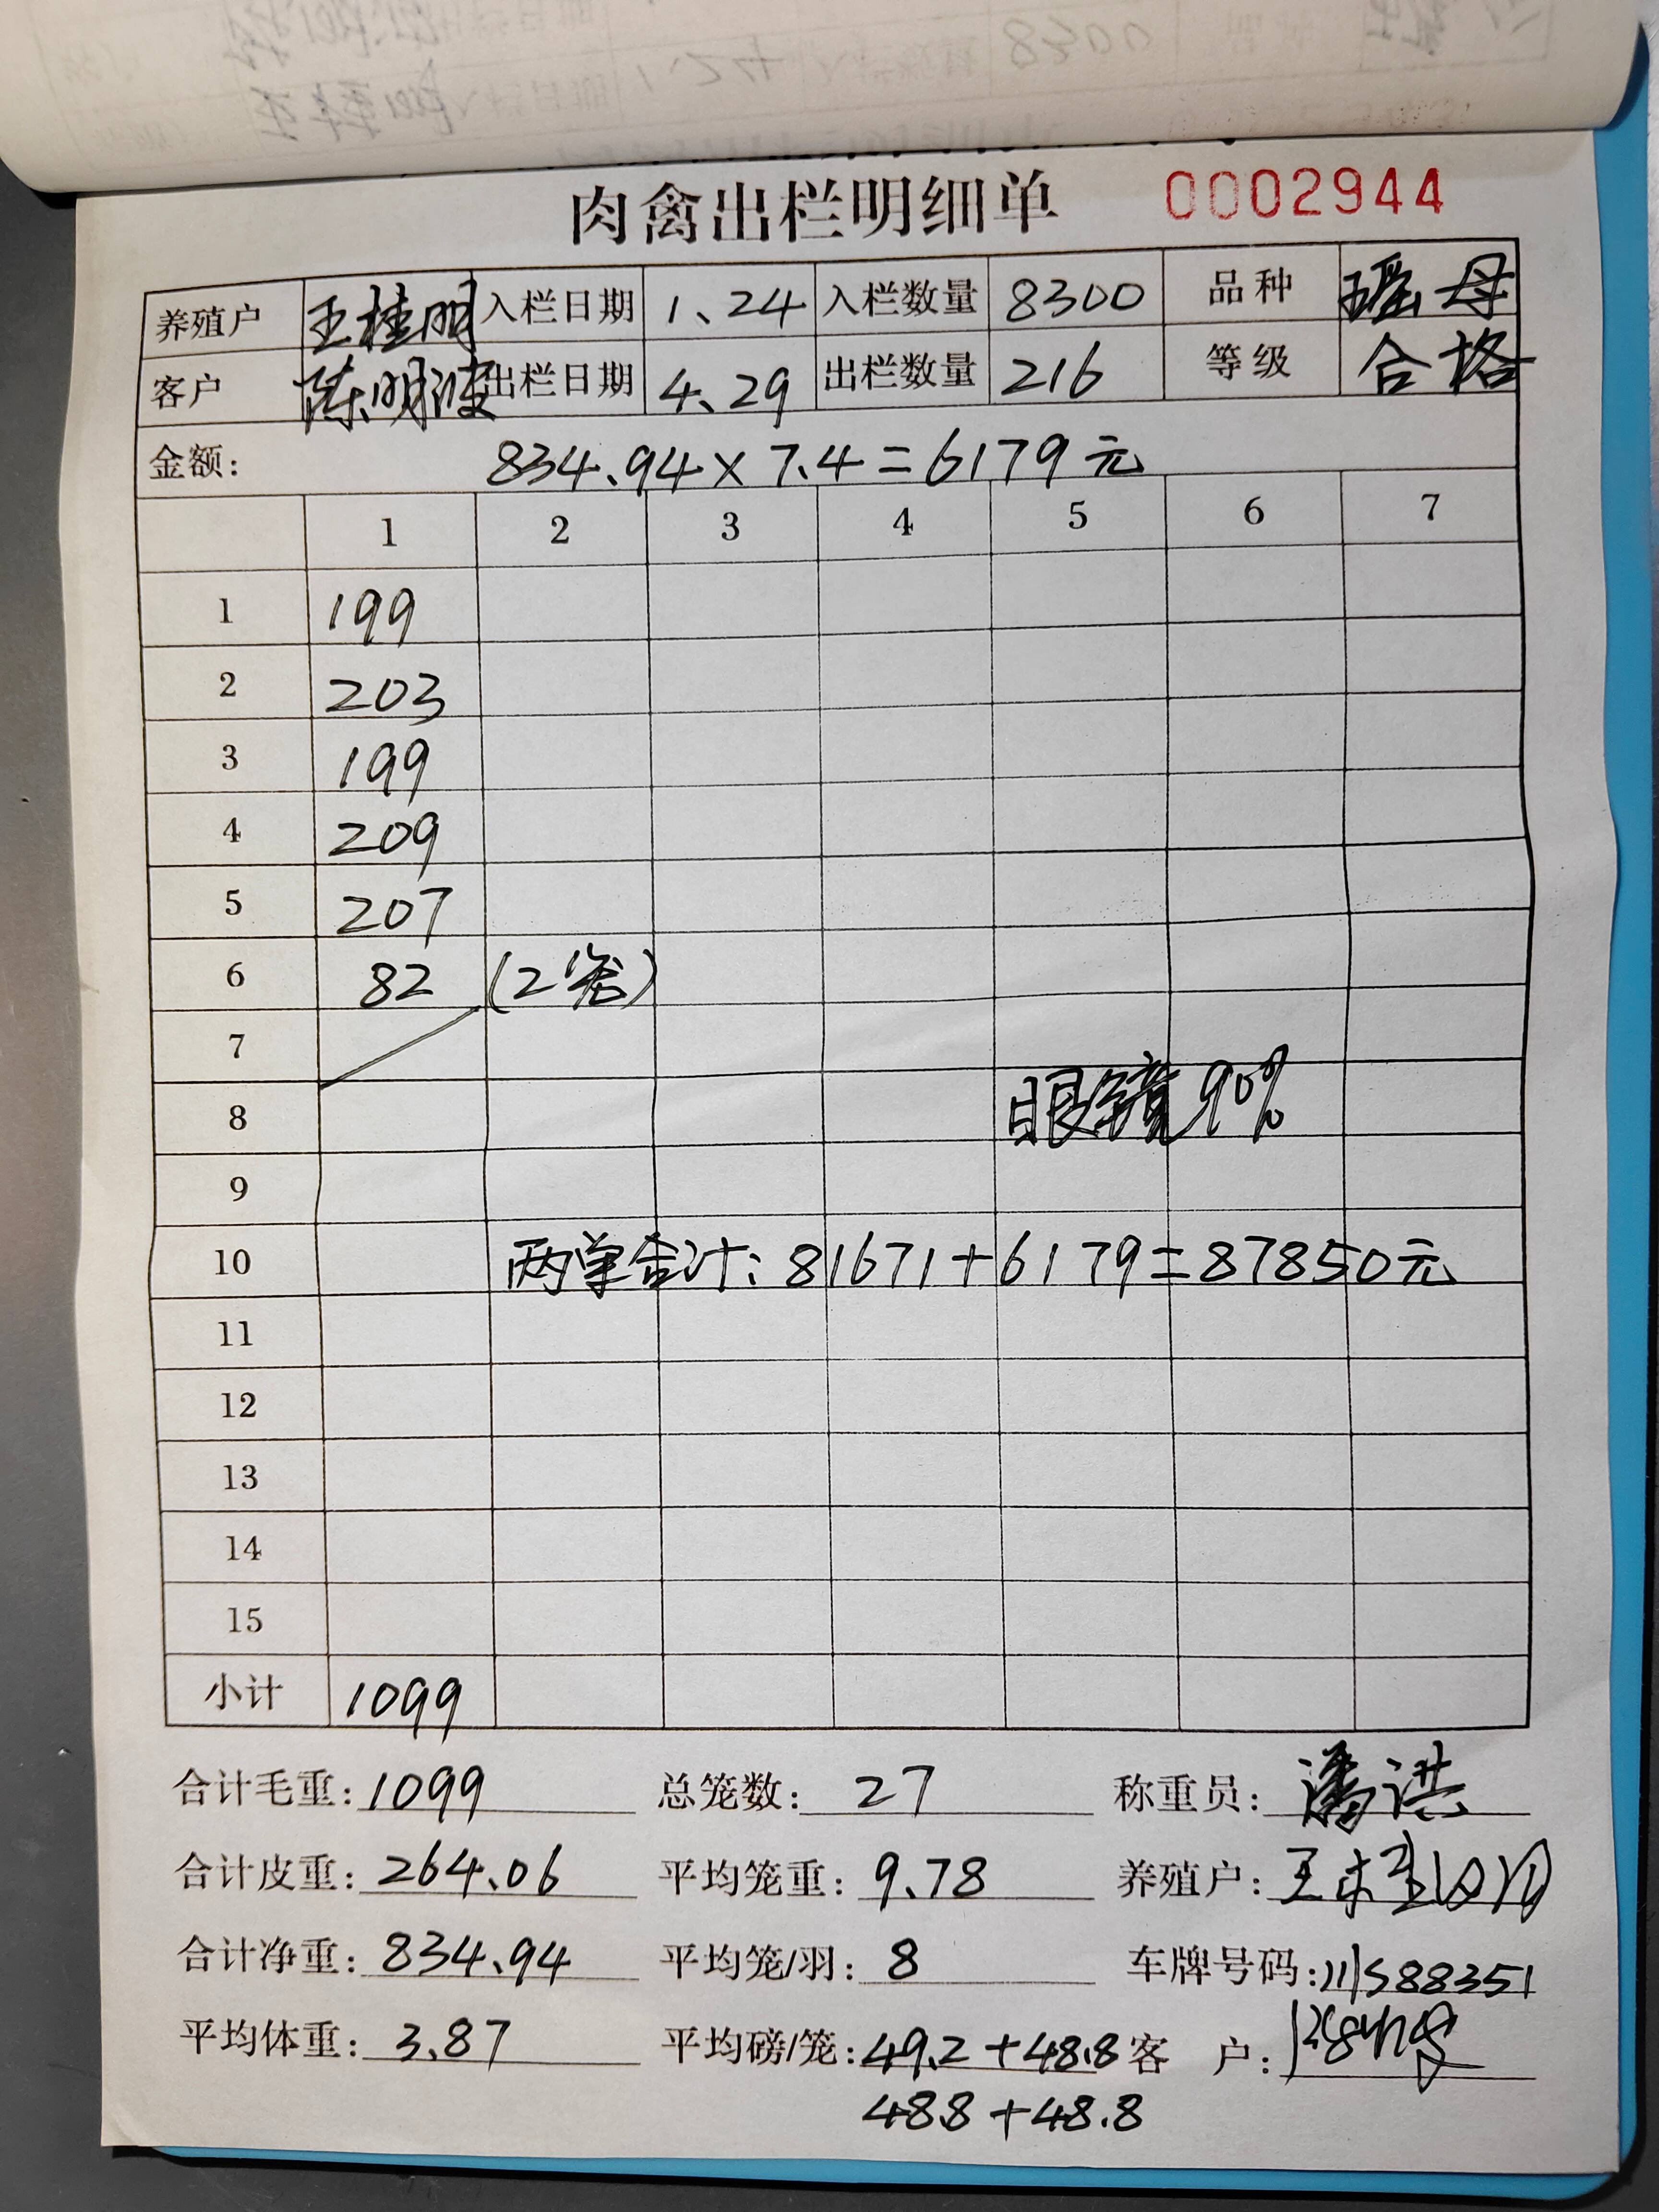 肉禽出栏明细单 0002944
养殖户 王桂明 入栏日期 1、24 入栏数量 8300 品种 瑶母
客户 陈明波 出栏日期 4、29 出栏数量 216 等级 合格
金额: 834.94×7.4=6179元
1 2 3 4 5 6 7
1 199
2 203
3 199
4 209
5 207
6 82 (2笼)
7
8 眼镜90%
9
10 两单合计:81671+6179=87850元
11
12
13
14
15
小计 1099
合计毛重:1099 总笼数:27 称重员:潘洪
合计皮重:264.06 平均笼重:9.78 养殖户:王桂明
合计净重:834.94 平均笼/羽:8 车牌号码:川S88351
平均体重:3.87 平均磅/笼:49.2+48.8 客 户:
48.8+48.8